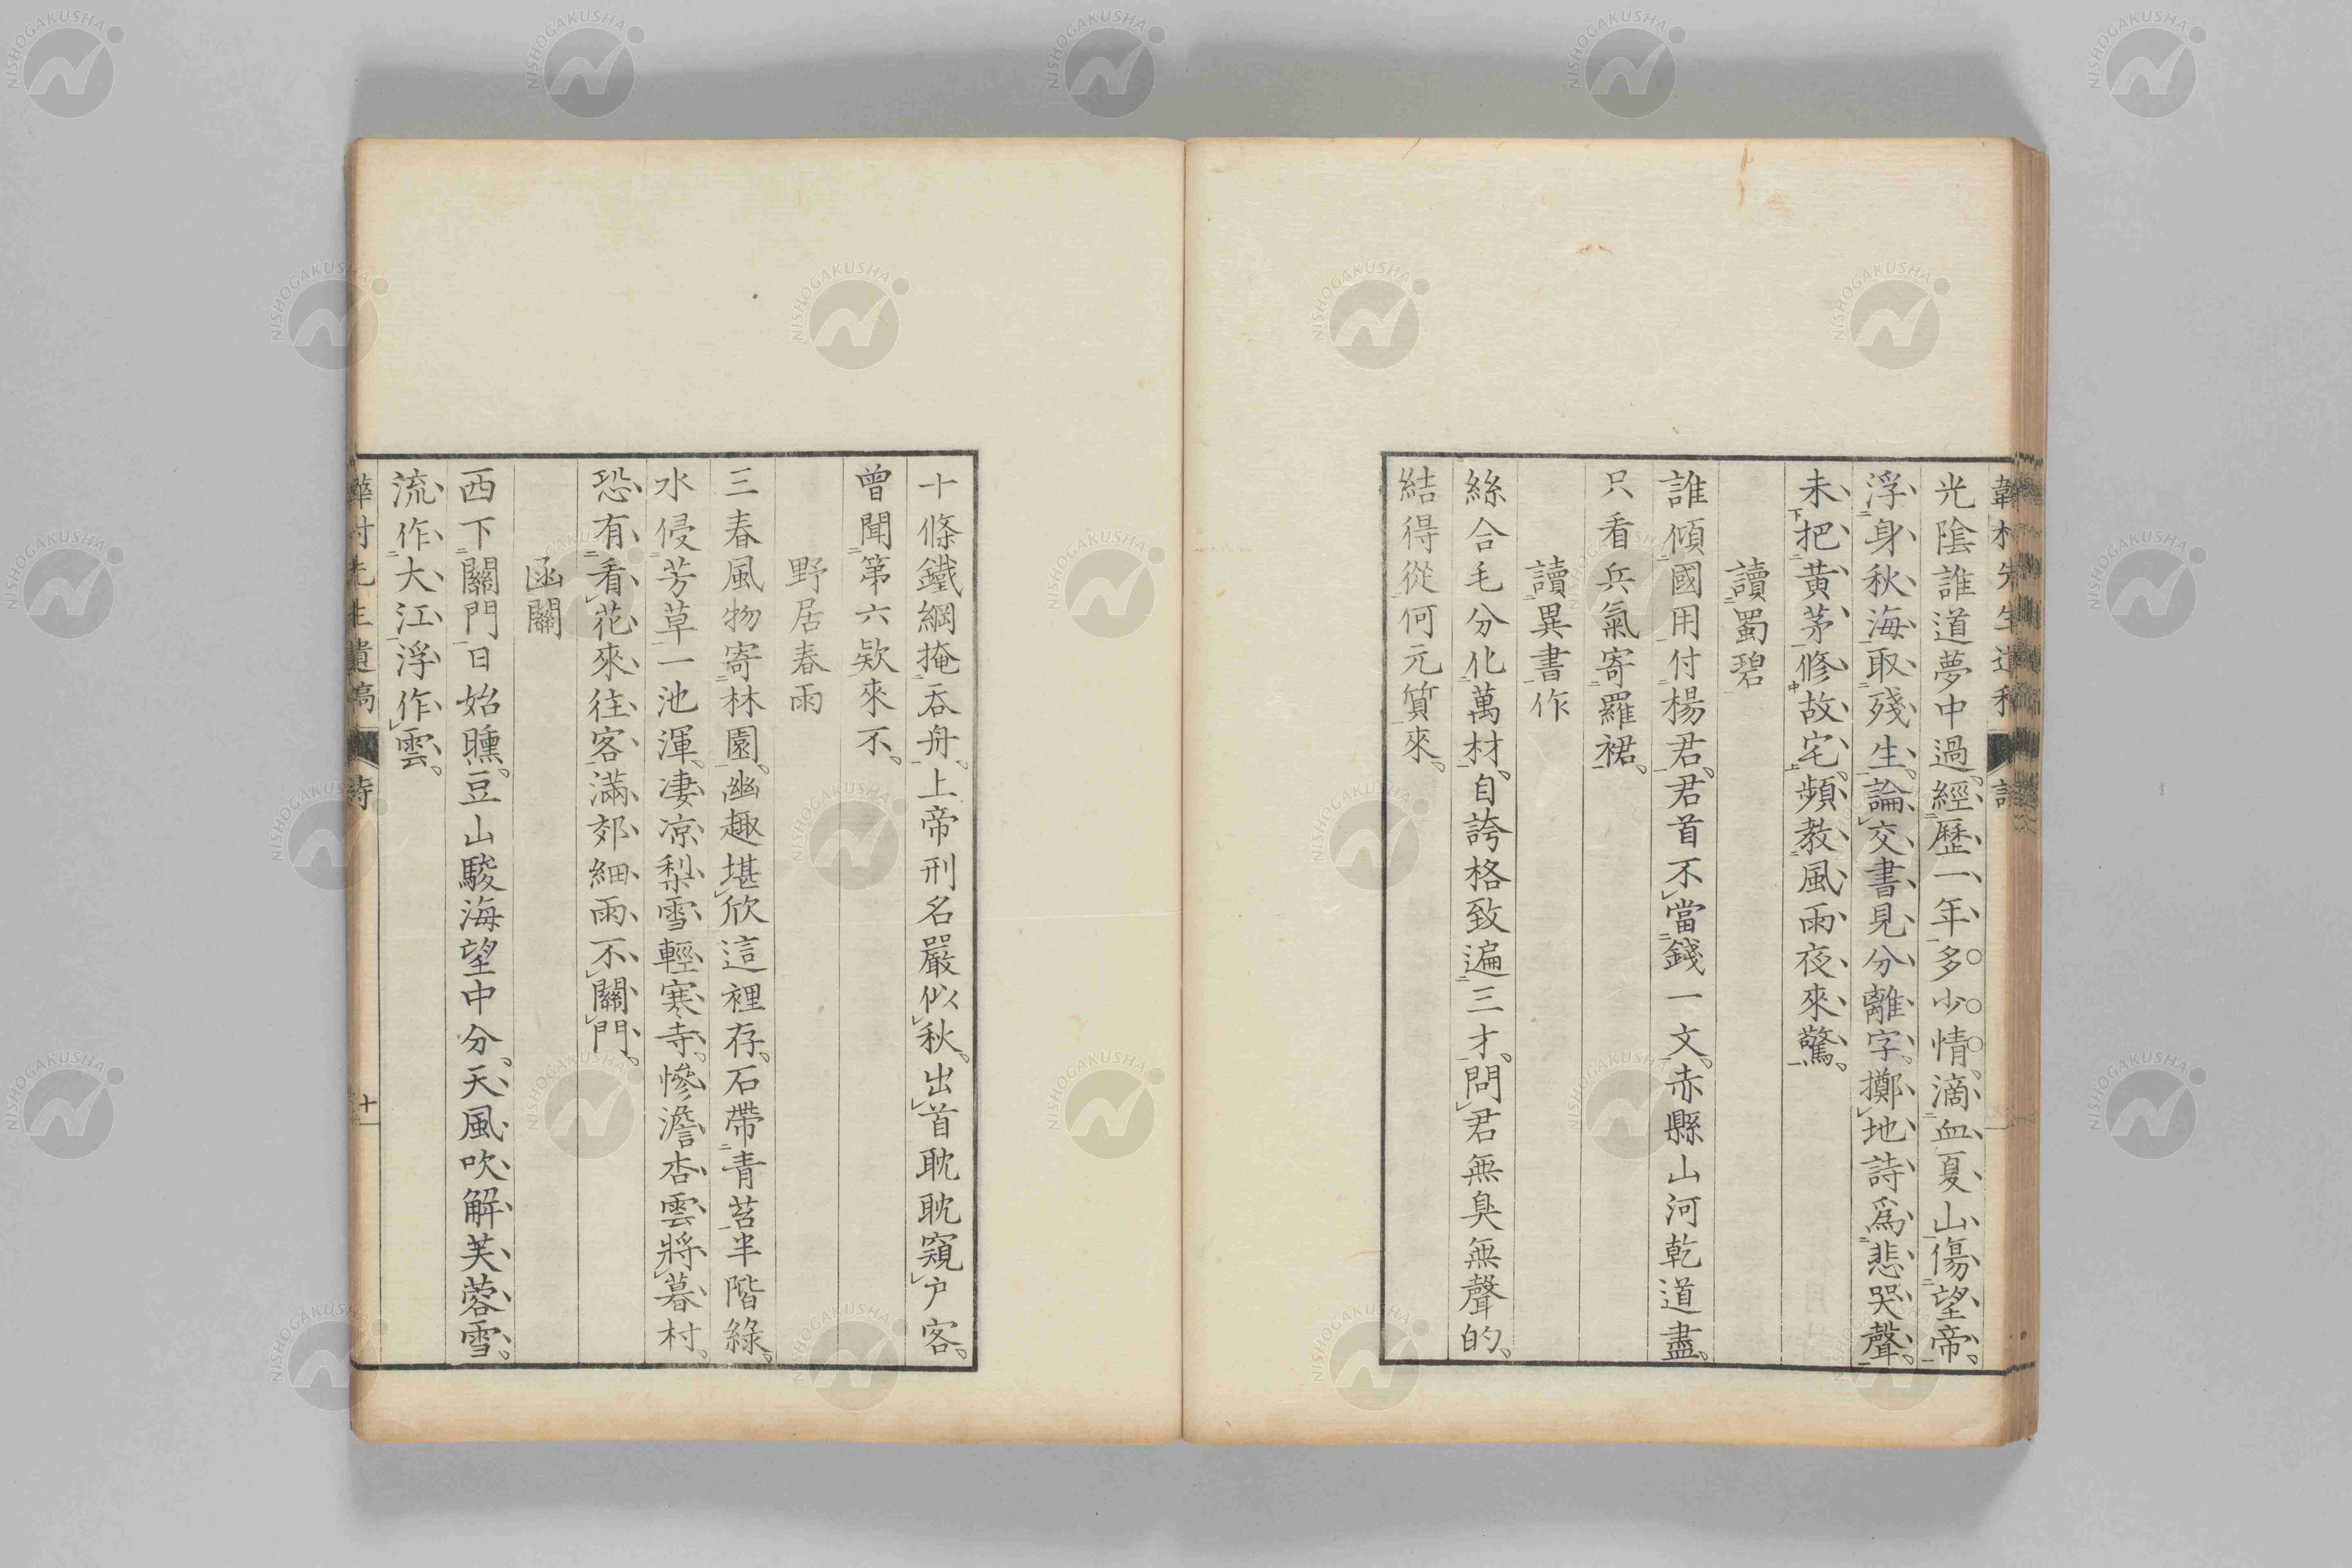 光陰誰道夢中過經歷一年多少情滴血夏山傷望帝
浮身秋海取殘生論交書見分離字擲地詩爲悲哭聲
未把黃茅修故宅頻教風雨夜來驚
讀蜀碧
誰傾國用付楊君君首不當錢一文赤縣山河乾道盡
只看兵氣寄羅裙
讀異書作
絲合毛分化萬材自誇格致遍三才問君無臭無聲的
結得從何元質來
十條鐵綱掩吞舟上帝刑名嚴似秋出首耽耽窺户客
曾聞第六欵來不
野居春雨
三春風物寄林園幽趣堪欣這裡存石帶青苔半階綠
水侵芳草一池渾凄凉梨雪輕寒寺慘澹杏雲將暮村
恐有看花來往客滿郊細雨不關門
函關
西下關門日始曛豆山駿海望中分天風吹解芙蓉雪
流作大江浮作雲
村先生遺稿 詩 十一
NISHOGAKUSHA